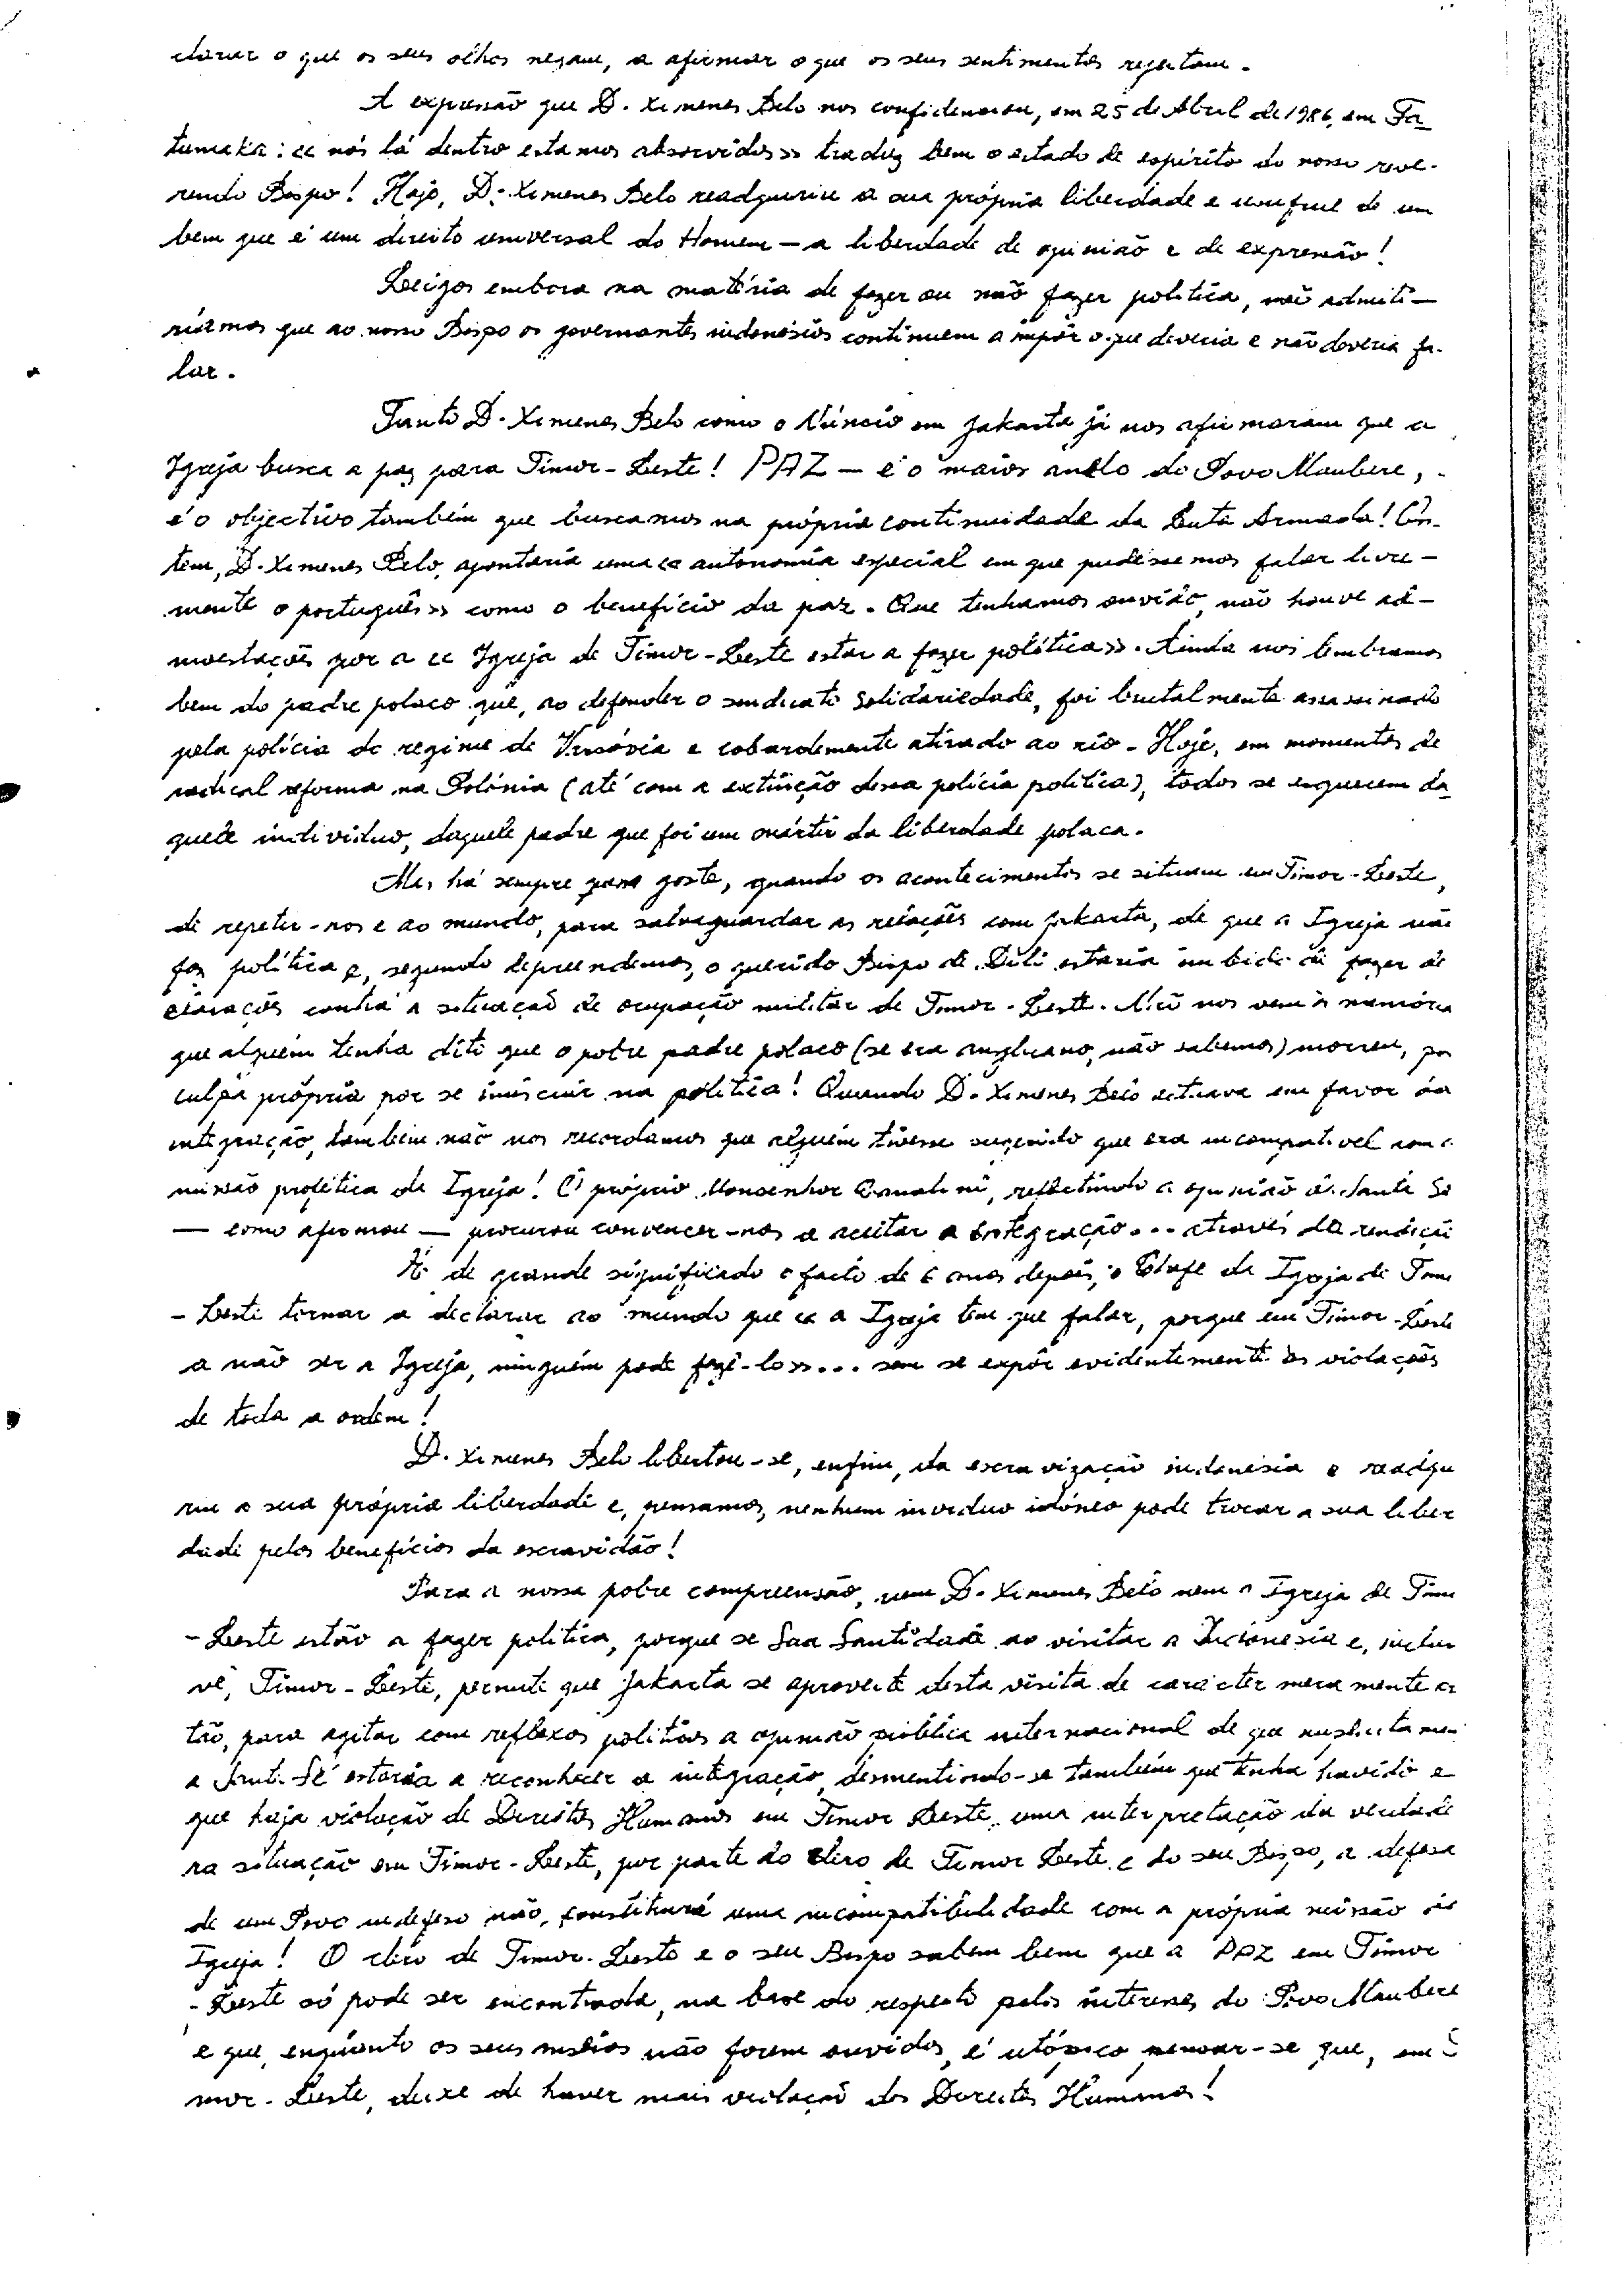 clarar o que os seus olhos negam, a afirmar o que os seus sentimentos rejeitam.
A expressão que D. Ximenes Belo nos confidenciou, em 25 de Abril de 1986, em Fa-
tumaka: «nós lá dentro estamos absorvidos» traduz bem o estado de espírito do nosso reve-
rendo Bispo! Hoje, D. Ximenes Belo readquiriu a sua própria liberdade e usufrue de um
bem que é um direito universal do Homem — a liberdade de opinião e de expressão!
Leigos embora na matéria de fazer ou não fazer política, não admiti-
ríamos que ao nosso Bispo os governantes indonésios continuem a impôr o que deveria e não deveria fa-
lar.
Tanto D. Ximenes Belo como o Núncio em Jakarta já nos afirmaram que a
Igreja busca a paz para Timor-Leste! PAZ — é o maior anelo do Povo Maubere,
é o objectivo também que buscamos na própria continuidade da Luta Armada! On-
tem, D. Ximenes Belo, apontaria uma «autonomia especial em que pudéssemos falar livre-
mente o português» como o benefício da paz. Que tenhamos ouvido, não houve ad-
moestações por a «Igreja de Timor-Leste estar a fazer política». Ainda nos lembramos
bem do padre polaco que, ao defender o sindicato Solidariedade, foi brutalmente assassinado
pela polícia do regime de Varsóvia e cobardemente atirado ao rio. Hoje, em momentos de
radical reforma na Polónia (até com a extinção dessa polícia política), todos se esquecem da-
quele indivíduo, daquele padre que foi um mártir da liberdade polaca.
Mas há sempre gosto, quando os acontecimentos se situam em Timor-Leste,
de repetir-nos e ao mundo, para salvaguardar as relações com Jakarta, de que a Igreja não
faz política e, segundo depreendemos, o querido Bispo de Dili estaria inibido de fazer de-
clarações contra a situação de ocupação militar de Timor-Leste. Não nos vem à memória
que alguém tenha dito que o pobre padre polaco (se era anglicano, não sabemos) morreu, por
culpa própria por se imiscuir na política! Quando D. Ximenes Belo actuava em favor da
integração, também não nos recordamos que alguém tivesse sugerido que era incompatível com a
missão profética da Igreja! O próprio Monsenhor Canalini, reflectindo a opinião da Santa Sé
— como afirmou — procurou convencer-nos a aceitar a integração... através da rendição
É de grande significado o facto de 6 anos depois, o Chefe da Igreja de Timor
-Leste tornar a declarar ao mundo que «a Igreja tem que falar, porque em Timor-Leste
a não ser a Igreja, ninguém pode fazê-lo»... sem se expôr evidentemente às violações
de toda a ordem!
D. Ximenes Belo libertou-se, enfim, da escravização indonésia e readqui
riu a sua própria liberdade e, pensamos, nenhum invíduo idóneo pode trocar a sua liber
dade pelos benefícios da escravidão!
Para a nossa pobre compreensão, nem D. Ximenes Belo nem a Igreja de Timor
-Leste estão a fazer política, porque se Sua Santidade ao visitar a Indonésia e, inclusi
vé, Timor-Leste, permite que Jakarta se aproveite desta visita de carácter meramente cris
tão, para agitar com reflexos políticos a opinião pública internacional de que implicitamente
a Santa Sé estaria a reconhecer a integração, desmentindo-se também que tenha havido e
que haja violação de Direitos Humanos em Timor Leste, uma interpretação da verdadei
ra situação em Timor-Leste, por parte do clero de Timor Leste e do seu Bispo, a defesa
de um Povo indefeso não, constituirá uma incompatibilidade com a própria missão da
Igreja! O clero de Timor-Leste e o seu Bispo sabem bem que a PAZ em Timor
-Leste só pode ser encontrada, na base do respeito pelos interesses do Povo Maubere
e que, enquanto os seus anseios não forem ouvidos, é utópico pensar-se que, em Ti
mor-Leste, deixe de haver mais violação dos Direitos Humanos!